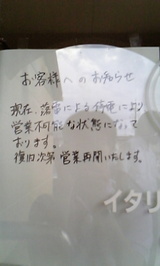 お客様へのお知らせ
現在、落雷による停電により
営業不可能な状態になって
おります。
復旧次第 営業再開いたします。
イタリ